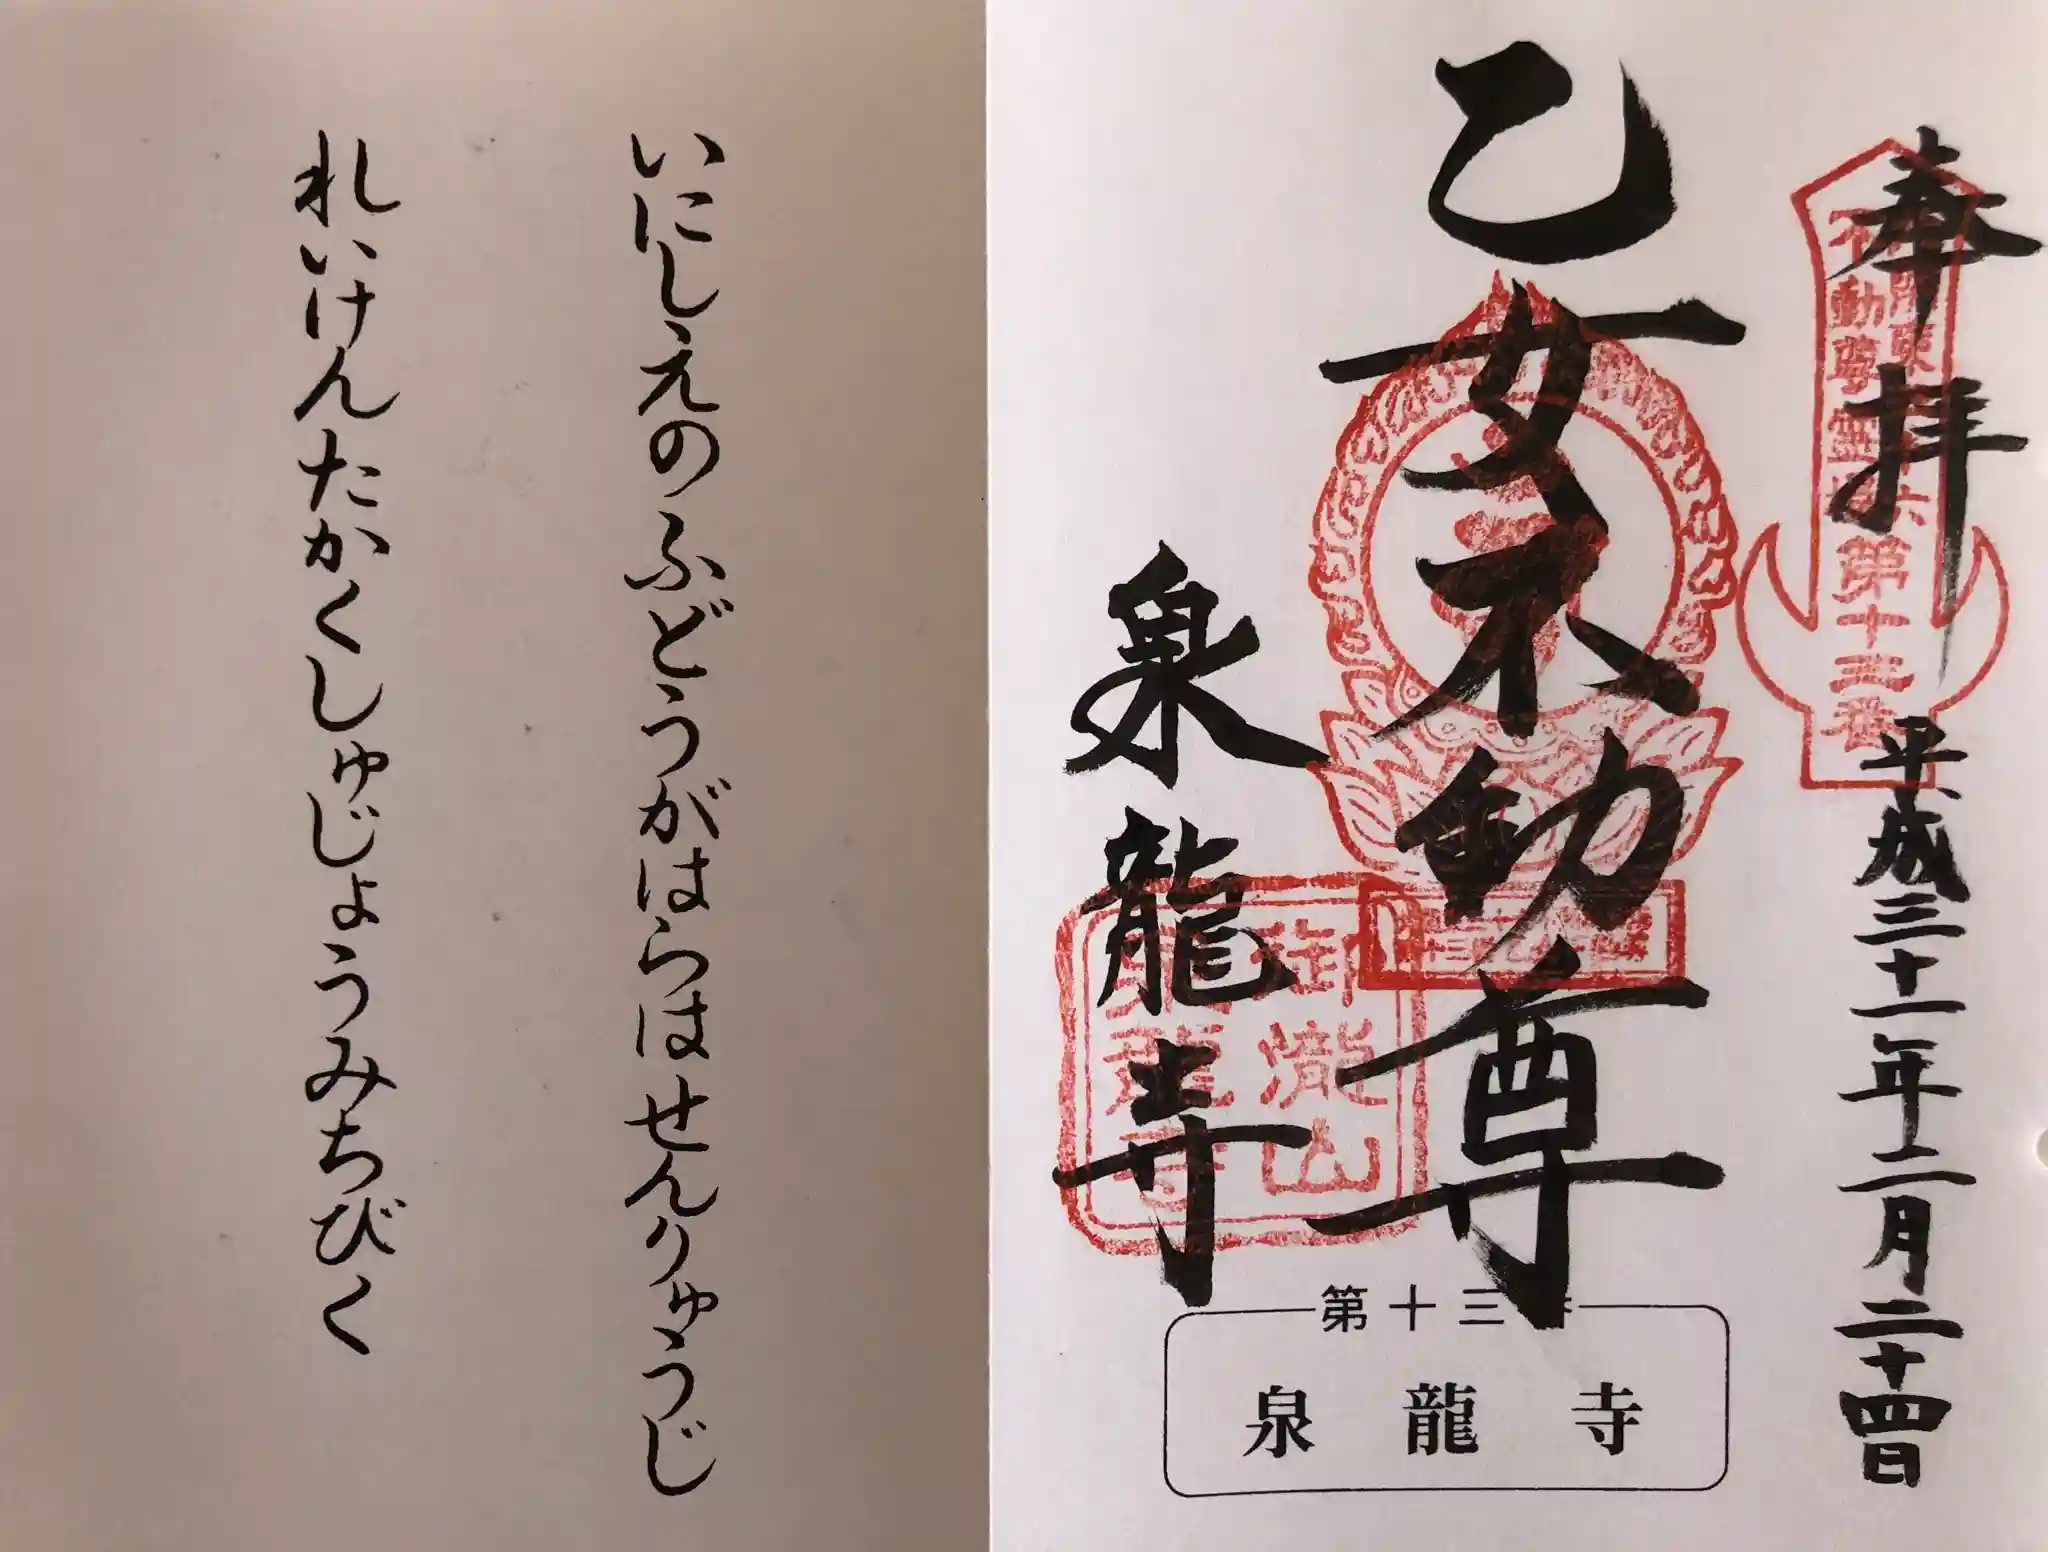 奉拝
平成三十一年二月二十四日
乙女不動尊
泉龍寺
御瀧山
泉龍寺
第十三
泉龍寺
いにしえのふどうがはらはせんりゅうじ
れいけんたかくしゅじょうみちびく